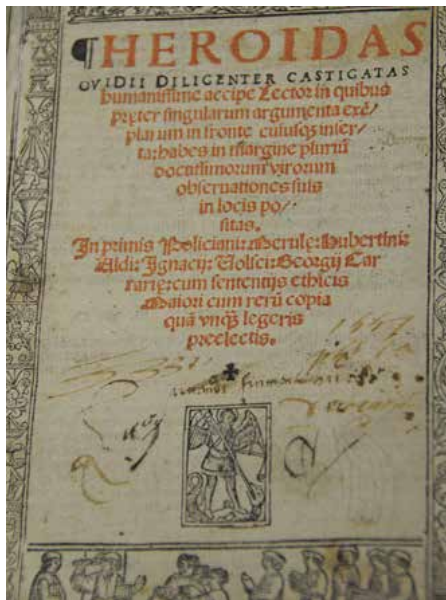 ¶HEROIDAS
OVIDII DILIGENTER CASTIGATAS
humanissime accipe Lector in quibus
preter singularum argumenta exē/
plarium in fronte cuiusqȝ inser/
ta: habes in margine pluriū
doctissimorum virorum
obseruationes suis
in locis po/
sitas.
In primis Policiani: Merulę: Hubertini:
Aldi: Ignacij: Volsci: Georgij Car
rarię: cum sententijs ethicis
Maiori cum rerū copia
quā vnqȝ legeris
preelectis.
1557